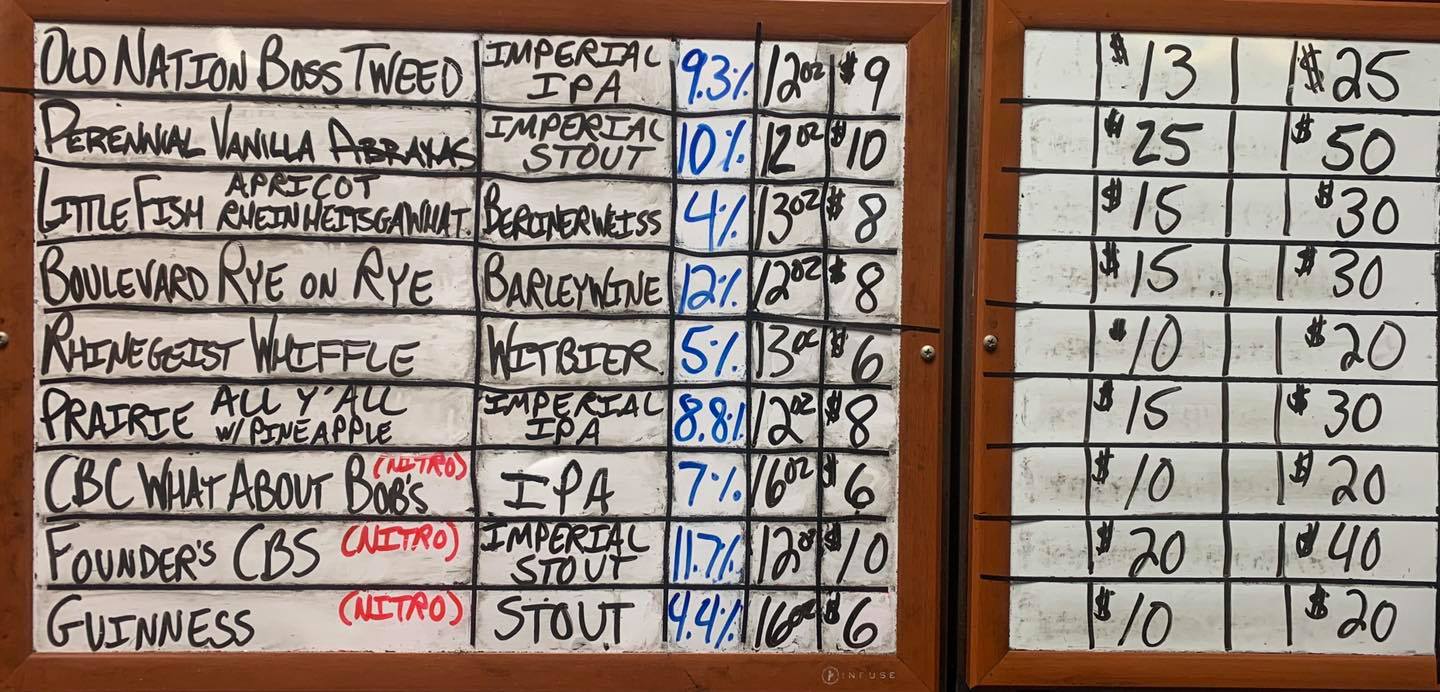 OLD NATION BOSS TWEED IMPERIAL IPA 9.3% 12oz $9 $13 $25
PERENNIAL VANILLA ABRAXAS IMPERIAL STOUT 10% 12oz $10 $25 $50
LITTLE FISH APRICOT RHEINHEITSGAWHAT BERLINERWEISS 4% 13oz $8 $15 $30
BOULEVARD RYE ON RYE BARLEYWINE 12% 12oz $8 $15 $30
RHINEGEIST WHIFFLE WITBIER 5% 13oz $6 $10 $20
PRAIRIE ALL Y'ALL W/ PINEAPPLE IMPERIAL IPA 8.8% 12oz $8 $15 $30
CBC WHAT ABOUT BOB'S (NITRO) IPA 7% 16oz $6 $10 $20
FOUNDER'S CBS (NITRO) IMPERIAL STOUT 11.7% 12oz $10 $20 $40
GUINNESS (NITRO) STOUT 4.4% 16oz $6 $10 $20
INFUSE